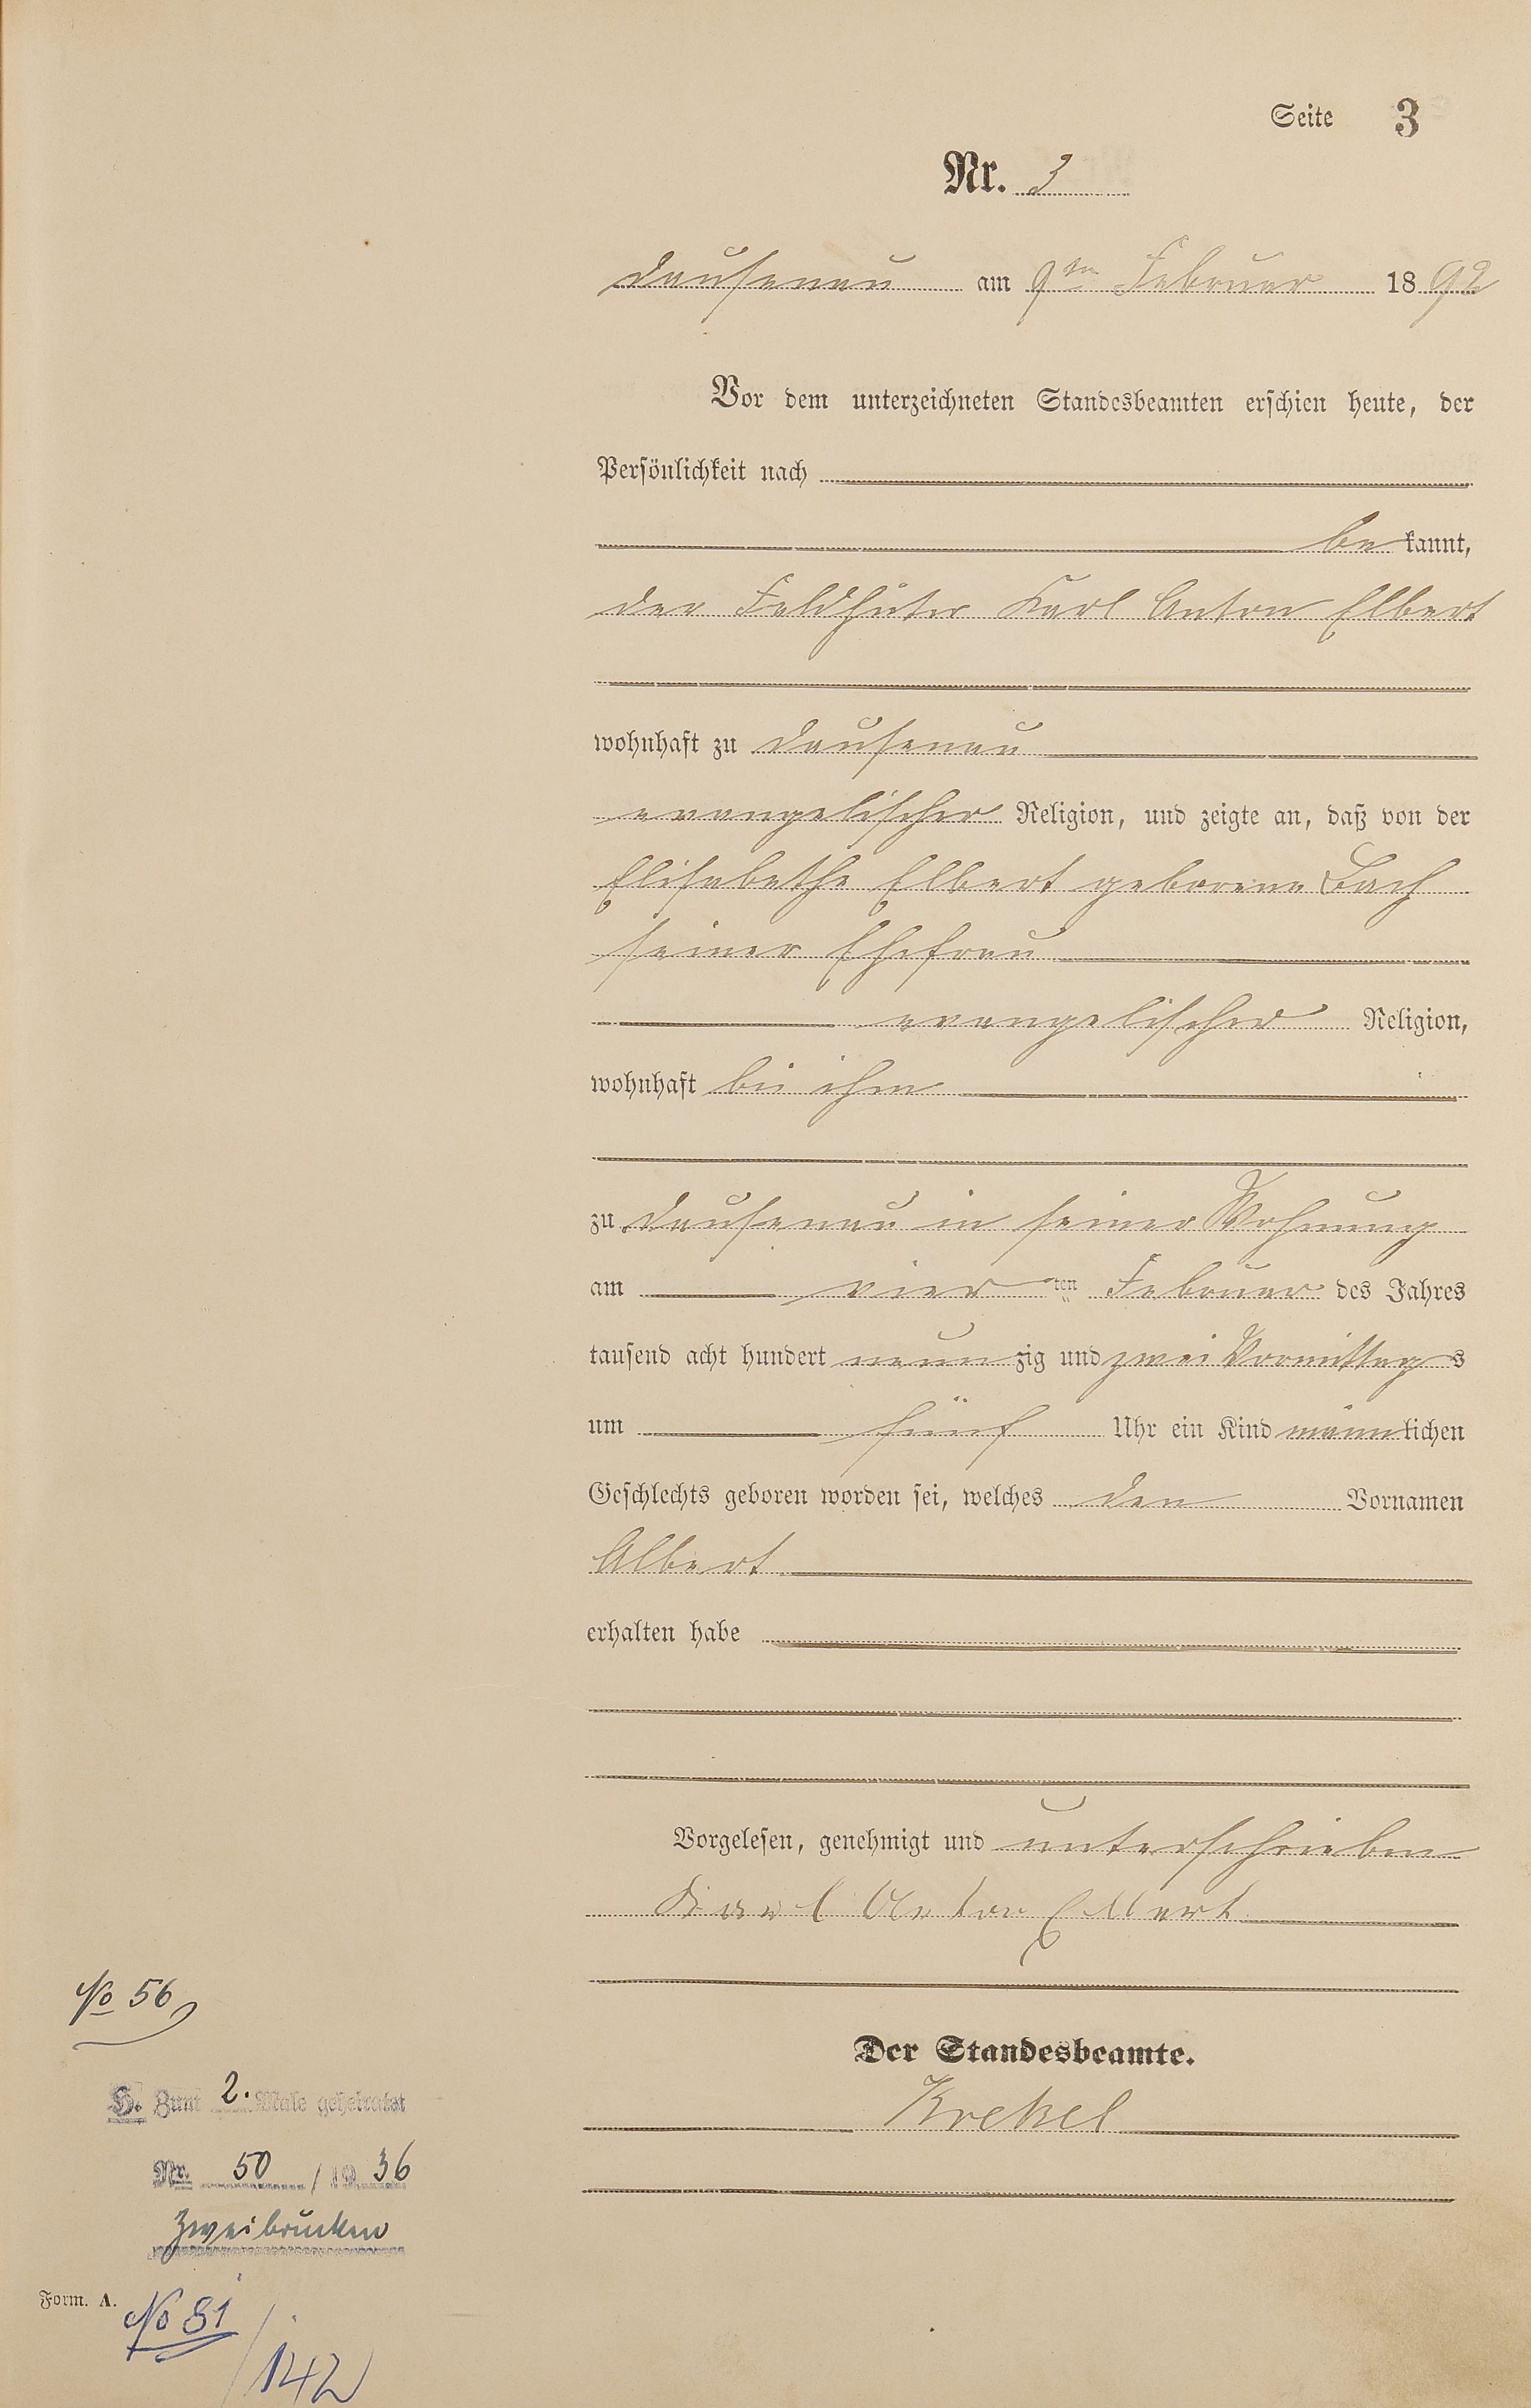 Seite 3
Nr. 3
Dausenau am 9ten Februar 1892
Vor dem unterzeichneten Standesbeamten erschien heute, der
Persönlichkeit nach
be kannt,
der Feldhüter Karl Anton Elbert
wohnhaft zu Dausenau
evangelischer Religion, und zeigte an, daß von der
Elisabethe Elbert geborene Bach
seiner Ehefrau
evangelischer Religion,
wohnhaft bei ihm
zu Dausenau in seiner Wohnung
am vier ten Februar des Jahres
tausend acht hundert neun zig und zwei Vormittag s
um fünf Uhr ein Kind männ lichen
Geschlechts geboren worden sei, welches den Vornamen
Albert
erhalten habe
Vorgelesen, genehmigt und unterschrieben
Karl Anton Elbert
Der Standesbeamte.
Krekel
No 56
H. Zum 2. Male geheiratet
Nr. 50 / 1936
Zweibrücken
Form. A.
No 81
/142